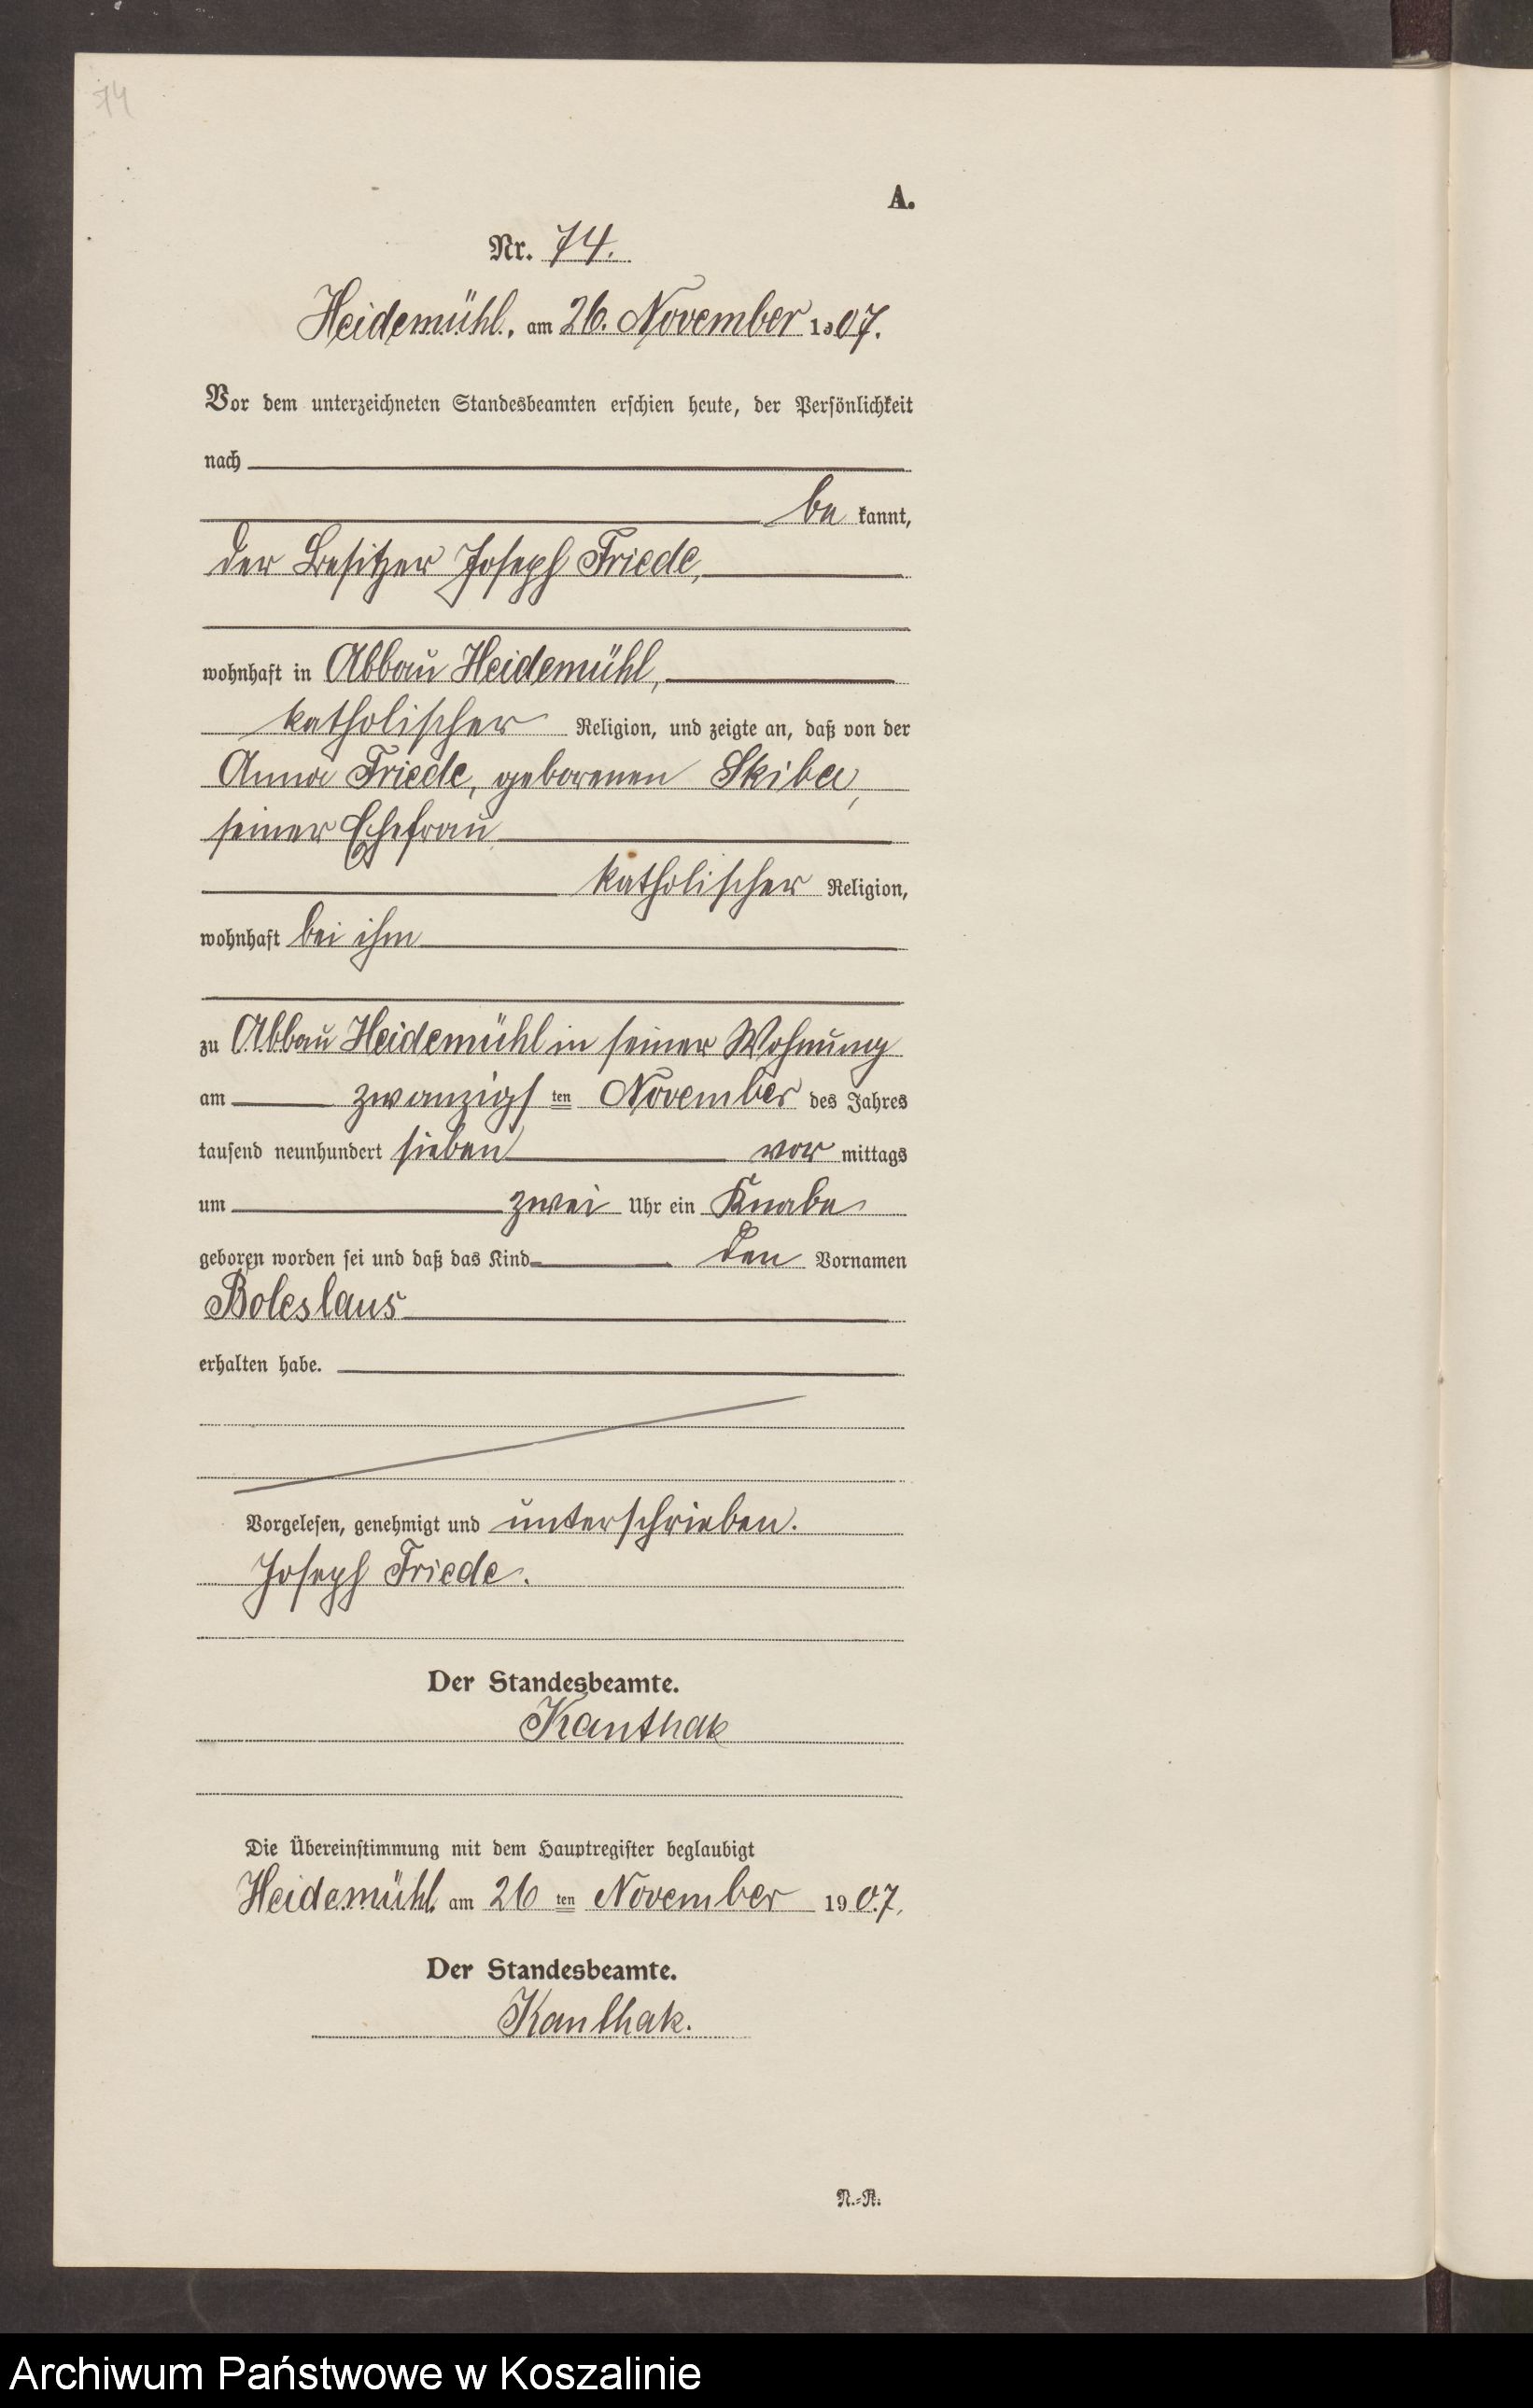 74
A.
Nr. 74.
Heidemühl, am 26. November 1907.
Vor dem unterzeichneten Standesbeamten erschien heute, der Persönlichkeit
nach
be kannt,
der Besitzer Joseph Friede,
wohnhaft in Abbau Heidemühl,
katholischer Religion, und zeigte an, daß von der
Anna Friede, geborenen Skiba,
seiner Ehefrau
katholischer Religion,
wohnhaft bei ihm
zu Abbau Heidemühl in seiner Wohnung
am zwanzigs ten November des Jahres
tausend neunhundert sieben vor mittags
um zwei Uhr ein Knabe
geboren worden sei und daß das Kind den Vornamen
Boleslaus
erhalten habe.
Vorgelesen, genehmigt und unterschrieben.
Joseph Friede.
Der Standesbeamte.
Kanthak
Die Übereinstimmung mit dem Hauptregister beglaubigt
Heidemühl am 26 ten November 1907.
Der Standesbeamte.
Kanthak.
N.-R.
Archiwum Państwowe w Koszalinie